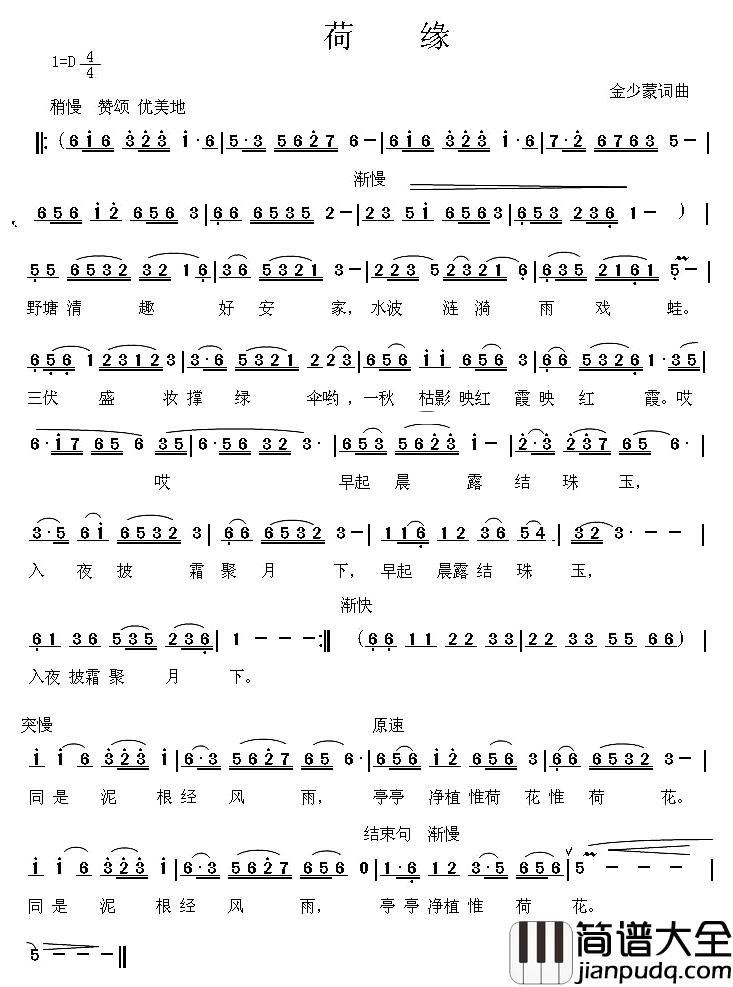 荷 缘
1=D 4/4
金少蒙词曲
稍慢 赞颂 优美地
‖:（6 1 6 3 2 3 1· 6 | 5· 3 5 6 2 7 6 – | 6 1 6 3 2 3 1· 6 | 7· 2 6 7 6 3 5 – |
渐慢
6 5 6 1 2 6 5 6 3 | 6 6 6 5 3 5 2 – | 2 3 5 1 6 5 6 3 | 6 5 3 2 3 6 1 – ）|
5 5 6 5 3 2 3 2 1 6 | 3 6 5 3 2 1 3 – | 2 2 3 5 2 3 2 1 6 | 6 3 5 2 1 6 1 5 – |
野塘 清 趣 好 安 家，水波 涟 漪 雨 戏 蛙。
6 5 6 1 2 3 1 2 3 | 3· 6 5 3 2 1 2 2 3 | 6 5 6 1 1 6 5 6 3 | 6 5 3 2 6 1· 3 5 |
三伏 盛 妆 撑 绿 伞哟，一秋 枯影 映红 霞 映 红 霞。哎
6· 1 7 6 5 6 3 5 | 6· 5 6 3 2 3· | 6 5 3 5 6 2 3 1 – | 2· 3 2 3 7 6 5 6· |
哎 早起 晨 露 结 珠 玉，
3· 5 6 1 6 5 3 2 3 | 6 6 6 5 3 2 3 – | 1 1 6 1 2 3 6 5 4 | 3 2 3· – – |
入 夜 披 霜 聚 月 下，早起 晨露 结 珠 玉，
渐快
6 1 3 6 5 3 5 2 3 6 | 1 – – – :‖ （6 6 1 1 2 2 3 3 | 2 2 3 3 5 5 6 6）|
入夜 披霜 聚 月 下。
突慢 原速
1 1 6 3 2 3 1 | 6· 3 5 6 2 7 6 5 6· | 6 5 6 1 2 6 5 6 3 | 6 6 6 5 3 2 3 – |
同 是 泥 根 经 风 雨，亭亭 净植 惟荷 花 惟 荷 花。
结束句 渐慢
1 1 6 3 2 3 1 | 6· 3 5 6 2 7 6 5 6 0 | 1· 6 1 2 3· 5 6 5 6 | 5 – – – |
同 是 泥 根 经 风 雨，亭 亭 净植 惟 荷 花。
5 – – – ‖
简谱大全
jianpudq.com